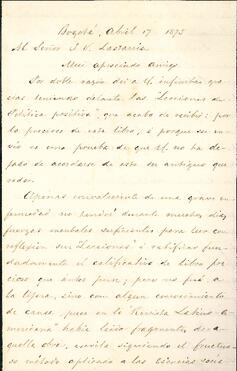 Bogotá, Abril 17 1875
Al Señor J. V. Lastarria
Mui apreciado amigo
Por doble razón doi a U. infinitas gra
cias teniendo delante las "Lecciones de
Política positiva", que acabo de recibir: por
lo precioso de este libro, i porque su en
vío es una prueba de que U. no ha de
jado de acordarse de este su antiguo que
redor.
Apenas convaleciente de una grave en
fermedad no tendré durante muchos días
fuerzas mentales suficientes para leer con
reflexión sus "Lecciones" i ratificar fun
dadamente el calificativo de libro pre
cioso que antes puse; pero no fué a
la lijera, sino con algun conocimiento
de causa, pues en la "Revista Latino-a
mericana" había leído fragmentos de a
quella obra, escrita siguiendo el fructuo
so método aplicado a las ciencias socia